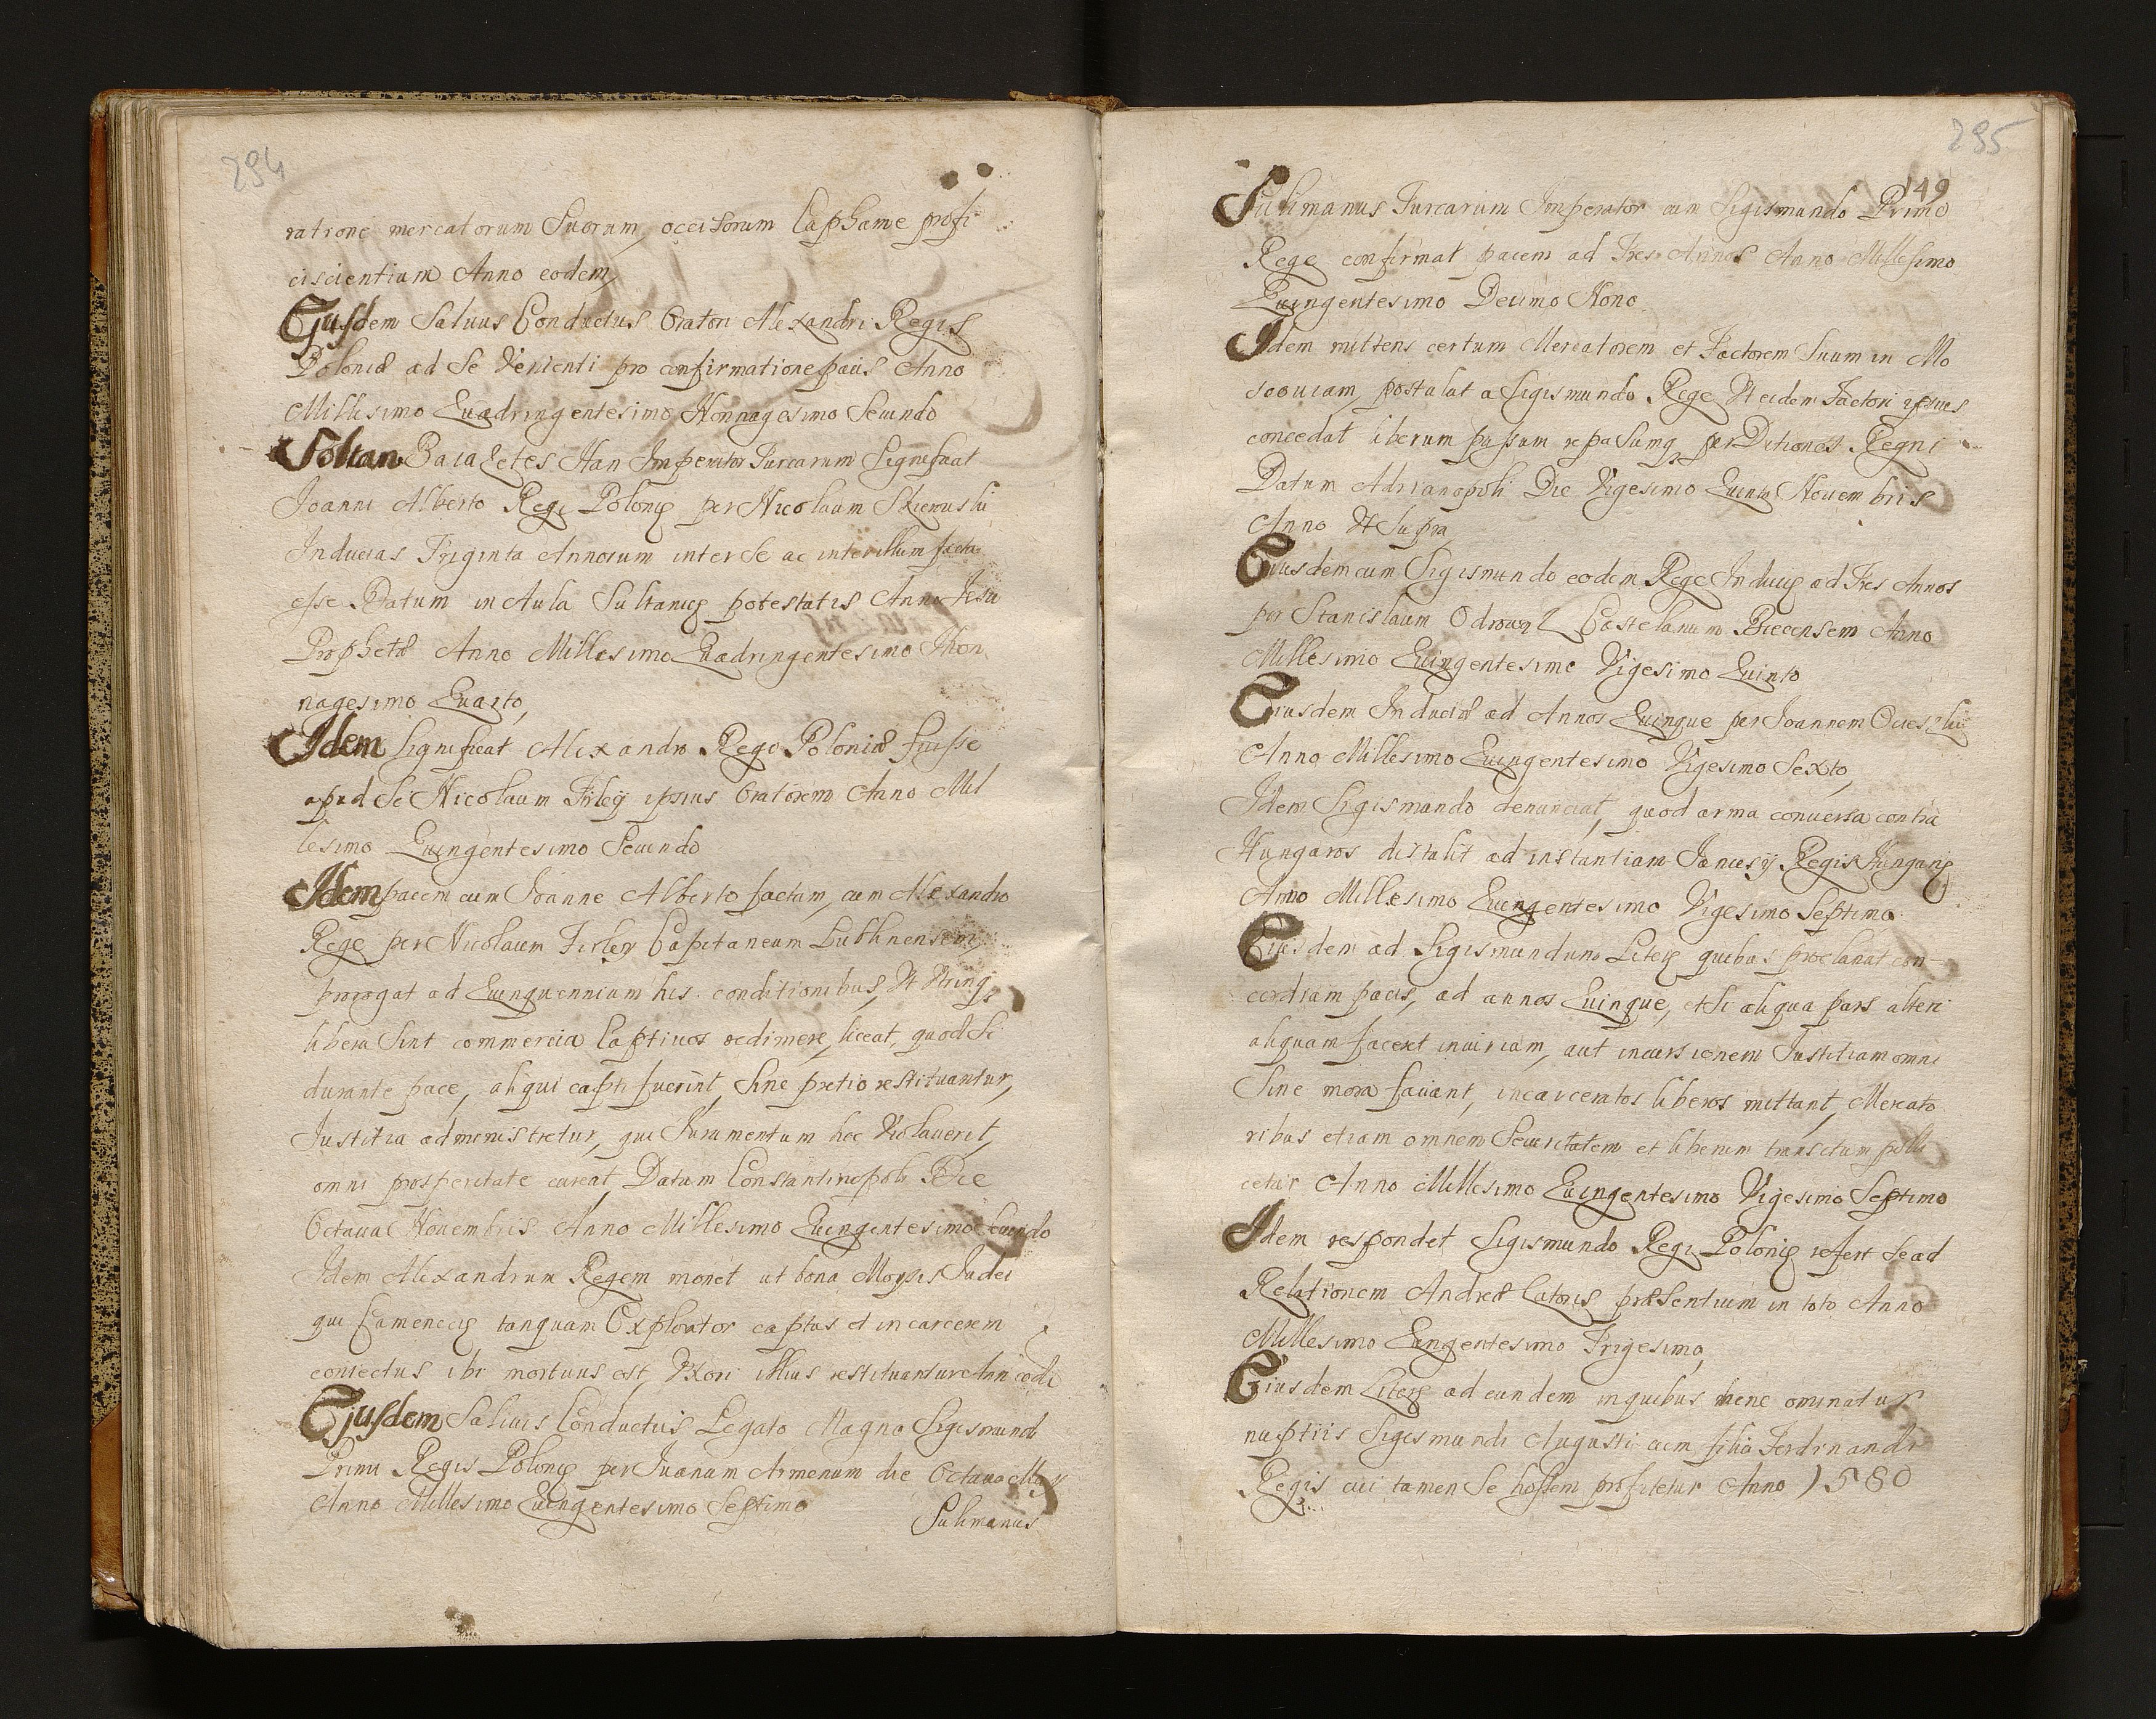 294
ratione mercatorum Suorum, occisorum Caphame profi
ciscientium Anno eodem,
Ejusdem Saluus Conductus Oratori Alexandri Regis
Poloniæ ad Se Venienti pro confirmatione pacis Anno
Millesimo Quadringentesimo Nonnagesimo Secundo
Soltan Baiazetes Han Imperator Turcarum Significat
Joanni Alberto Regi Polonię per Nicolaum Strzemuski
Inducias Triginta Annorum inter Se ac inter illum facta
esse Datum in Aula Sultanicę potestatis Anno Jesu
Prophetæ Anno Millesimo Quadringentesimo Non
nagesimo Quarto,
Idem Significat Alixandro Rege Poloniæ fuisse
apud Se Nicolaum Firleij ipsius Oratorem Anno Mil
lesimo Quingentesimo Secundo
Idem pacem cum Joanne Alberto factam, cum Alexandro
Rege per Nicolaum Firley Capitaneum Lublinensem
prorogat ad Quinquennium his conditionibus, Vt Vtrinq
libera Sint commercia Captiuos redimere, liceat, quod Si
durante pace, aliqui capti fuerint, Sine pretio restituantur,
Justitia administretur, qui Juramentum hoc Violauerit,
omni prosperitate careat, Datum Constantinopoli Die
Octaua Nouembris Anno Millesimo Quingentesimo Secundo
Idem Alixandrum Regem monet ut bona Moysis Judei
qui Camenecię tanquam Explorator captus et in carcerem
coniectus ibi mortuus est, Vxori illius restituantur Ann eode
Ejusdem Saluus Conductus Legato Magno Sigismundi
Primi Regis Polonię per Iuanum Armenum die Octaua Maij
Anno Millesimo Quingentesimo Septimo
Sulimanus
295
149
Sulimanus Turcarum Imperator cum Sigismundo Primo
Rege confirmat pacem ad Tres Annos Anno Millesimo
Quingentesimo Decimo Nono
Idem mittens certum Mercatorem et Factorem Suum in Mo
scouiam, postulat a Sigismundo Rege Vt eidem Factori ipsius
concedat liberum passum repasumq per Ditiones Regni
Datum Adrianopoli Die Vigesimo Quinto Nouembris
Anno Vt Supra,
Eiusdem cum Sigismundo eodem Rege Inducię ad Tres Annos
per Stanislaum Odrowąz Castelanum Biecensem Anno
Millesimo Quingentesimo Vigesimo Quinto
Eiusdem Induciæ ad Annos Quinque per Joannem Ocieski
Anno Millesimo Quingentesimo Vigesimo Sexto,
Idem Sigismundo denunciat, quod arma conuersa contra
Hungaros distulit ad instantiam Janusij Regis Hungarię
Anno Millesimo Quingentesimo Vigesimo Septimo
Eiusdem ad Sigismundum Literę quibus proclamat con-
cordiam pacis, ad annos Quinque, et Si aliqua pars alteri
aliquam faceret iniuriam, aut incursionem Justitiam omni
Sine mora faciant, incarceratos liberos mittant, Mercato
ribus etiam omnem Securitatem et liberum transitum polli
cetur Anno Millesimo Quingentesimo Vigesimo Septimo
Idem respondet Sigismundo Regi Polonię refert Se ad
Relationem Andreæ Latoris præsentium in toto Anno
Millesimo Quingentesimo Trigesimo,
Eiusdem Literę ad eundem in quibus bene ominatur
nuptiis Sigismundi Augusti cum filia Ferdinandi
Regis cui tamen Se hostem profitetur Anno 1580